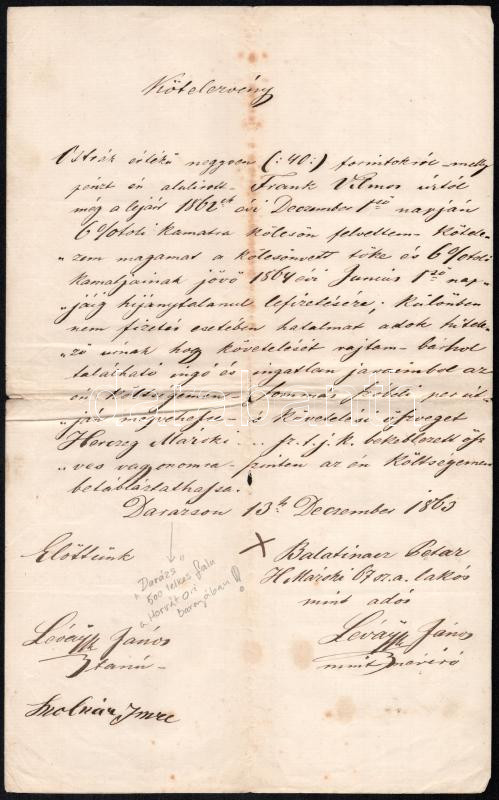 Kötelezvény
Osztrák értékű negyven (:40:) forintokról melly
pénzt én alulirott Frank Vilmos úrtól
még a lejárt 1862ik évi December 1ső napján
6% toli kamatra kölcsön felvettem kötele-
"zem magamat a kölcsönvett tőke és 6% toli
kamatjainak jövő 1864 évi Junius 1ső nap-
"jáig hijánytalanul lefizetésére; különben
nem fizetés esetében hatalmat adok hitele-
"ző urnak hogy követelését rajtam bárhol
található ingó és ingatlan javaimbol az
én költségemen Sommás szóbeli per út-
"ján megvehesse követelési összveget
Herczeg Máróki f. t. j. k. bekeblezett ösz
"ves vagyonomra szinten az én költségemen
betábláztathassa.
Darázson 13ik December 1863
Előttünk
X Balatinacz Petar
H Máróki 67 sz. a. lakós
mint adós
"Darázs"
500 lelkes falu
a Horvát O.i
Baranyában!!
Lévay János
tanu
Lévay János
mint névíró
Molnár Imre